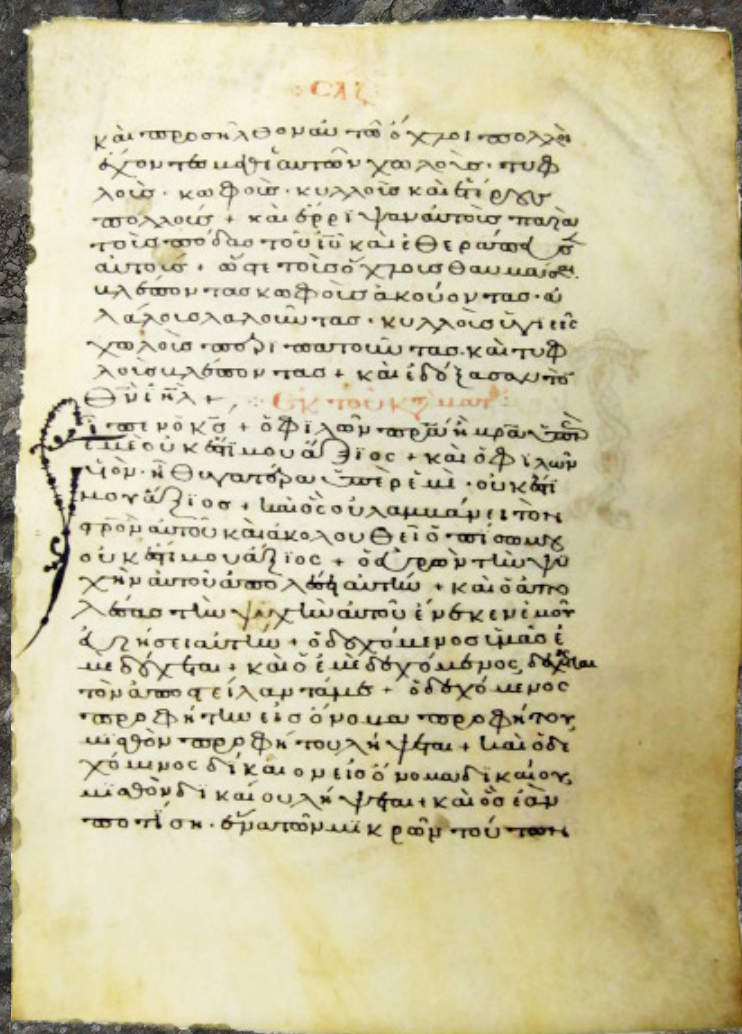 σλζ
καὶ προσῆλθον αὐτῶ ὄχλοι πολλοὶ
ἔχοντες μεθ' ἑαυτῶν χωλοὺς · τυφ
λοὺς · κωφοὺς · κυλλοὺς καὶ ἑτέρους
πολλοὺς + καὶ ἔρριψαν αὐτοὺς παρὰ
τοὺς πόδας τοῦ ιυ καὶ ἐθεράπευσεν
αὐτούς + ὥστε τοὺς ὄχλους θαυμάσαι
βλέποντας κωφοὺς ἀκούοντας · ἀ
λάλους λαλοῦντας · κυλλοὺς ὑγιεῖς
χωλοὺς περιπατοῦντας · καὶ τυφ
λοὺς βλέποντας + καὶ ἐδόξασαν τὸν
θν ιηλ +
ἐκ τοῦ κατὰ ματθ
Εἶπεν ὁ κς + ὁ φιλῶν πρα ἢ μρα ὑπὲρ
ἐμὲ οὐκ ἔστι μου ἄξιος + καὶ ὁ φιλῶν
υἱὸν · ἢ θυγατέρα ὑπὲρ ἐμὲ · οὐκ ἔστι
μου ἄξιος + καὶ ὃς οὐ λαμβάνει τὸν
στρον αὐτοῦ καὶ ἀκολουθεῖ ὀπίσω μου
οὐκ ἔστι μου ἄξιος + ὁ εὑρὼν τὴν ψυ
χὴν αὐτοῦ ἀπολέσει αὐτὴν + καὶ ὁ ἀπο
λέσας τὴν ψυχὴν αὐτοῦ ἕνεκεν ἐμοῦ
εὑρήσει αὐτὴν + ὁ δεχόμενος ὑμᾶς ἐ
μὲ δέχεται + καὶ ὁ ἐμὲ δεχόμενος, δέχεται
τὸν ἀποστείλαντά με + ὁ δεχόμενος
προφήτην εἰς ὄνομα προφήτου,
μισθὸν προφήτου λήψεται + καὶ ὁ δε
χόμενος δίκαιον εἰς ὄνομα δικαίου,
μισθὸν δικαίου λήψεται + καὶ ὃς ἐὰν
ποτίση · ἕνα τῶν μικρῶν τούτων